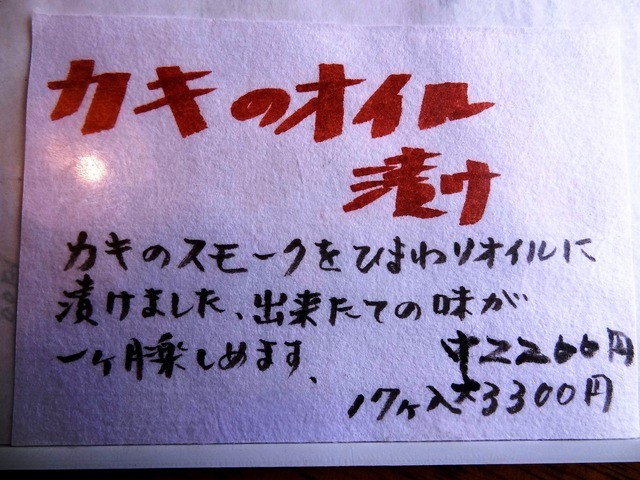 カキのオイル
漬け
カキのスモークをひまわりオイルに
漬けました、出来たての味が
一ヶ月楽しめます、
中2200円
17ヶ入大3300円